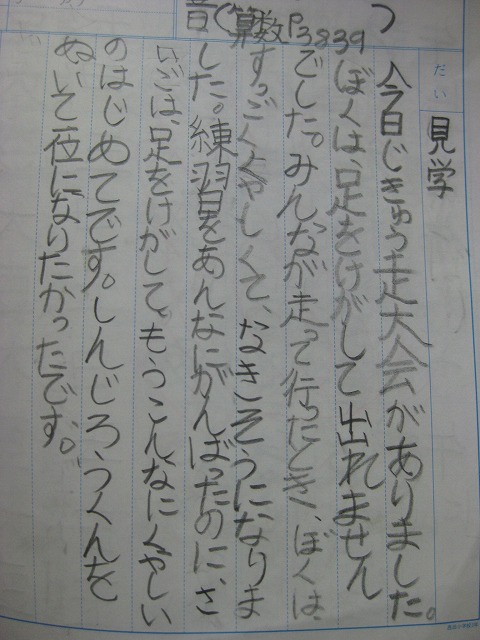 音(算数P3839)
だい
見学
今日じきゅう走大会がありました。
ぼくは、足をけがして出れません
でした。みんなが走って行ったとき、ぼくは、
すっごくくやしくて、なきそうになりま
した。練習をあんなにがんばったのに、さ
いごは、足をけがして、もうこんなにくやしい
のはじめてです。しんじろうくんを
ぬいて一位になりたかったです。